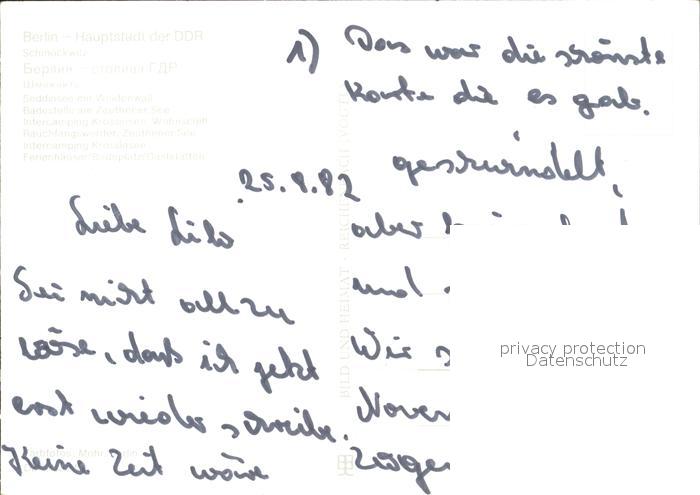 Berlin – Hauptstadt der DDR
Schmöckwitz
Берлин – столица ГДР
Шмёквитц
Seddinsee mit Weidenwall
Badestelle am Zeuthener See
Intercamping Krossinsee, Wohnschiff
Rauchfangswerder, Zeuthener See
Intercamping Krossinsee
Ferienhäuser/Badeplatz/Gaststätten
25.8.82
Liebe Lilo
Sei nicht allzu
böse, daß ich jetzt
erst wieder schreibe.
Keine Zeit wäre
BILD UND HEIMAT · REICHENBACH
1) Das war die schönste
Karte die es gab.
geschwindelt,
aber
und
Wir
Noven
privacy protection
Datenschutz